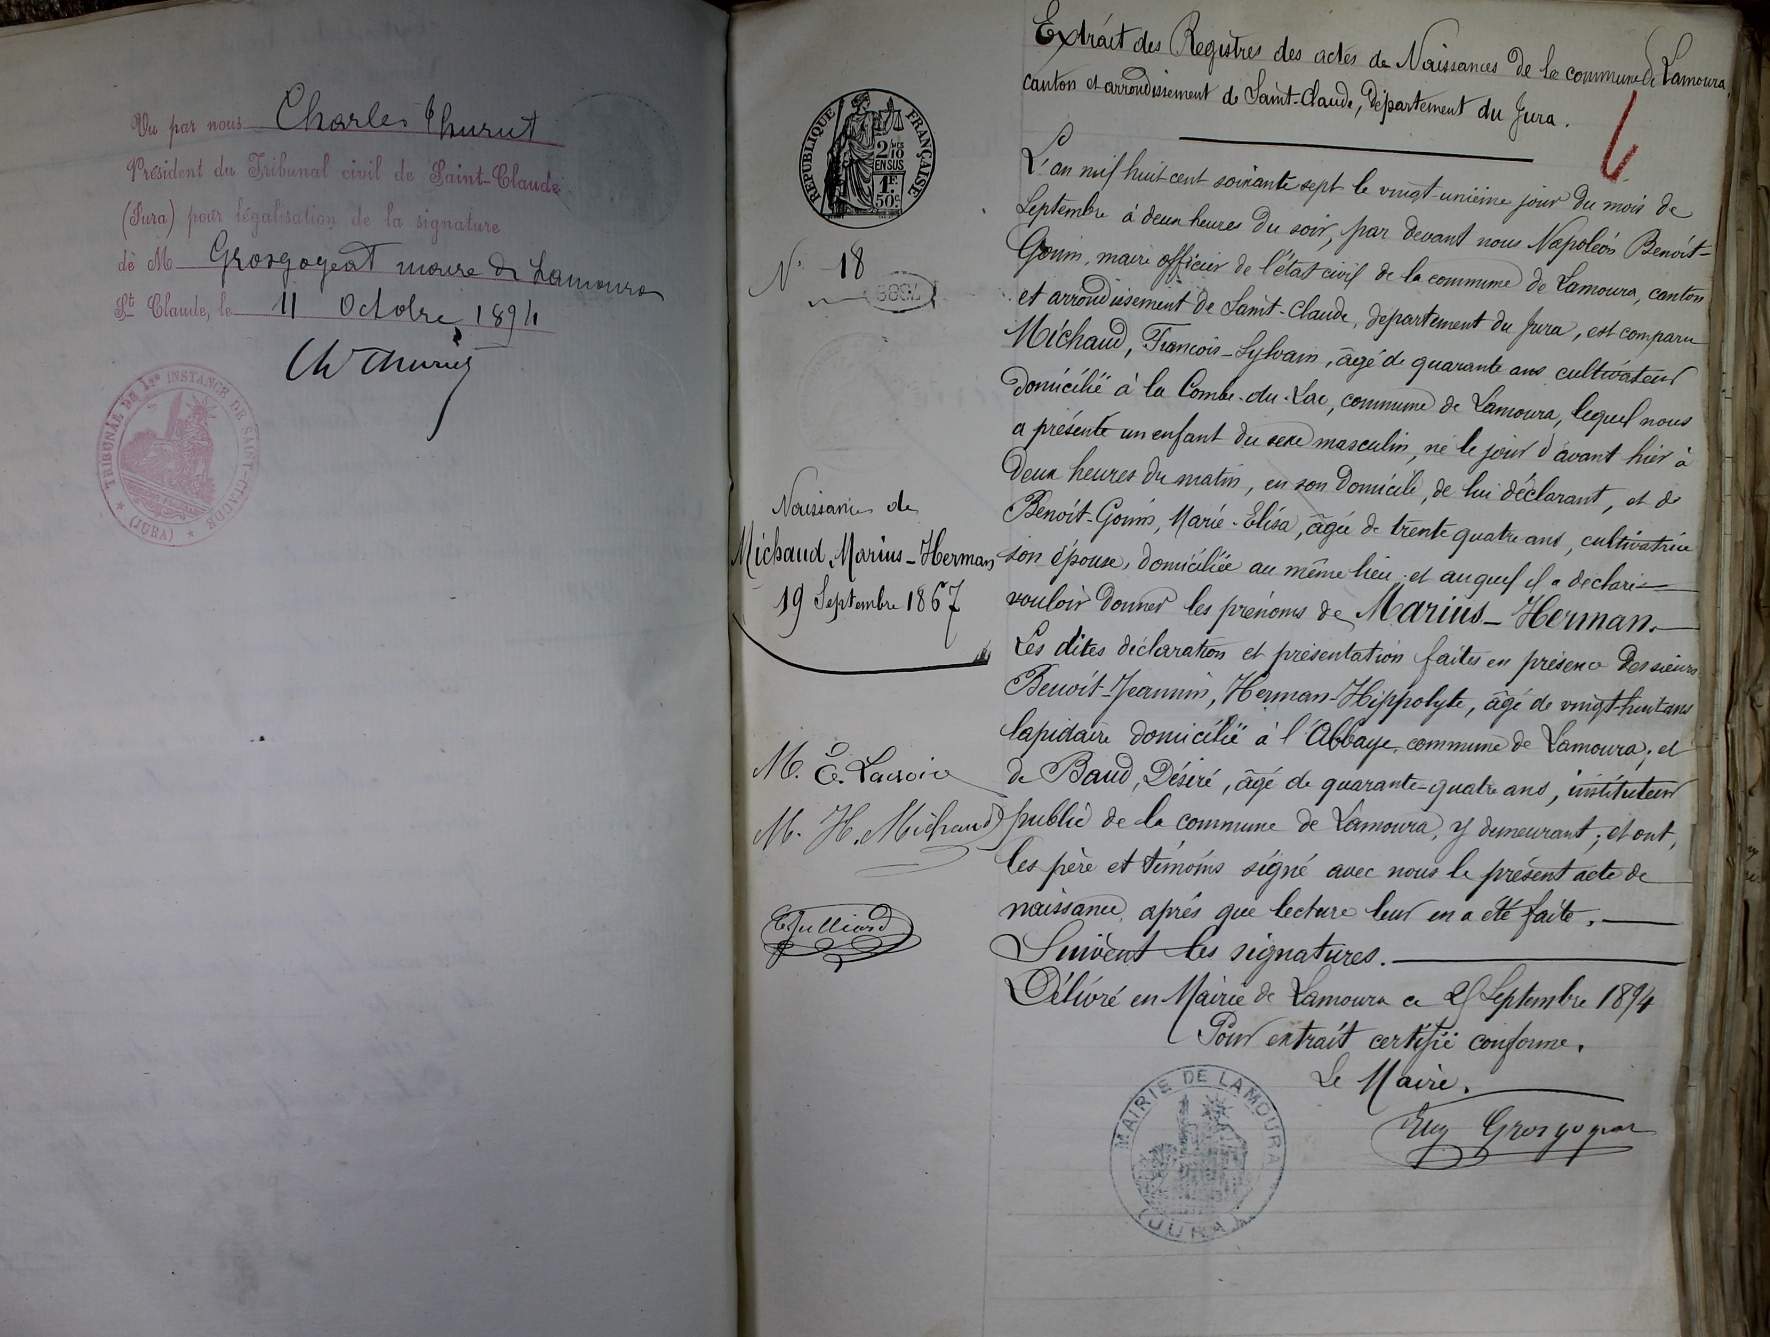 Vu par nous Charles Thurut
Président du Tribunal civil de Saint-Claude
(Jura) pour légalisation de la signature
de M Grosgogeat maire de Lamoura
St Claude, le 11 Octobre 1894
TRIBUNAL DE 1re INSTANCE DE SAINT-CLAUDE
* (JURA) *
RÉPUBLIQUE FRANÇAISE
2/10
EN SUS
1F.
50c.
N° 18
Naissance de
Michaud Marius-Herman
19 Septembre 1867
M. E. Lacroix
M. H. Michaud
E Julliard
Extrait des Registres des actes de Naissances de la commune de Lamoura,
canton et arrondissement de Saint-Claude, Département du Jura.
L'an mil huit cent soixante sept le vingt-unième jour du mois de
Septembre à deux heures du soir, par devant nous Napoléon Benoit-
Gonin, maire officier de l'état civil de la commune de Lamoura, canton
et arrondissement de Saint-Claude, département du Jura, est comparu
Michaud, François-Sylvain, âgé de quarante ans cultivateur
domicilié à la Combe-du-Lac, commune de Lamoura, lequel nous
a présenté un enfant du sexe masculin, né le jour d'avant hier à
deux heures du matin, en son domicile, de lui déclarant, et de
Benoit-Gonin, Marie-Elisa, âgée de trente quatre ans, cultivatrice
son épouse, domiciliée au même lieu; et auquel il a déclaré
vouloir donner les prénoms de Marius-Herman.
Les dites déclaration et présentation faites en présence des sieurs
Benoit-Jeannin, Herman-Hippolyte, âgé de vingt-huit ans
lapidaire domicilié à l'Abbaye, commune de Lamoura; et
de Baud, Désiré, âgé de quarante-quatre ans, instituteur
public de la commune de Lamoura, y demeurant; et ont,
les père et témoins signé avec nous le présent acte de
naissance, après que lecture leur en a été faite.
Suivent les signatures.
Délivré en Mairie de Lamoura ce 25 Septembre 1894
Pour extrait certifié conforme.
Le Maire.
Grosgogeat
MAIRIE DE LAMOURA
(JURA)